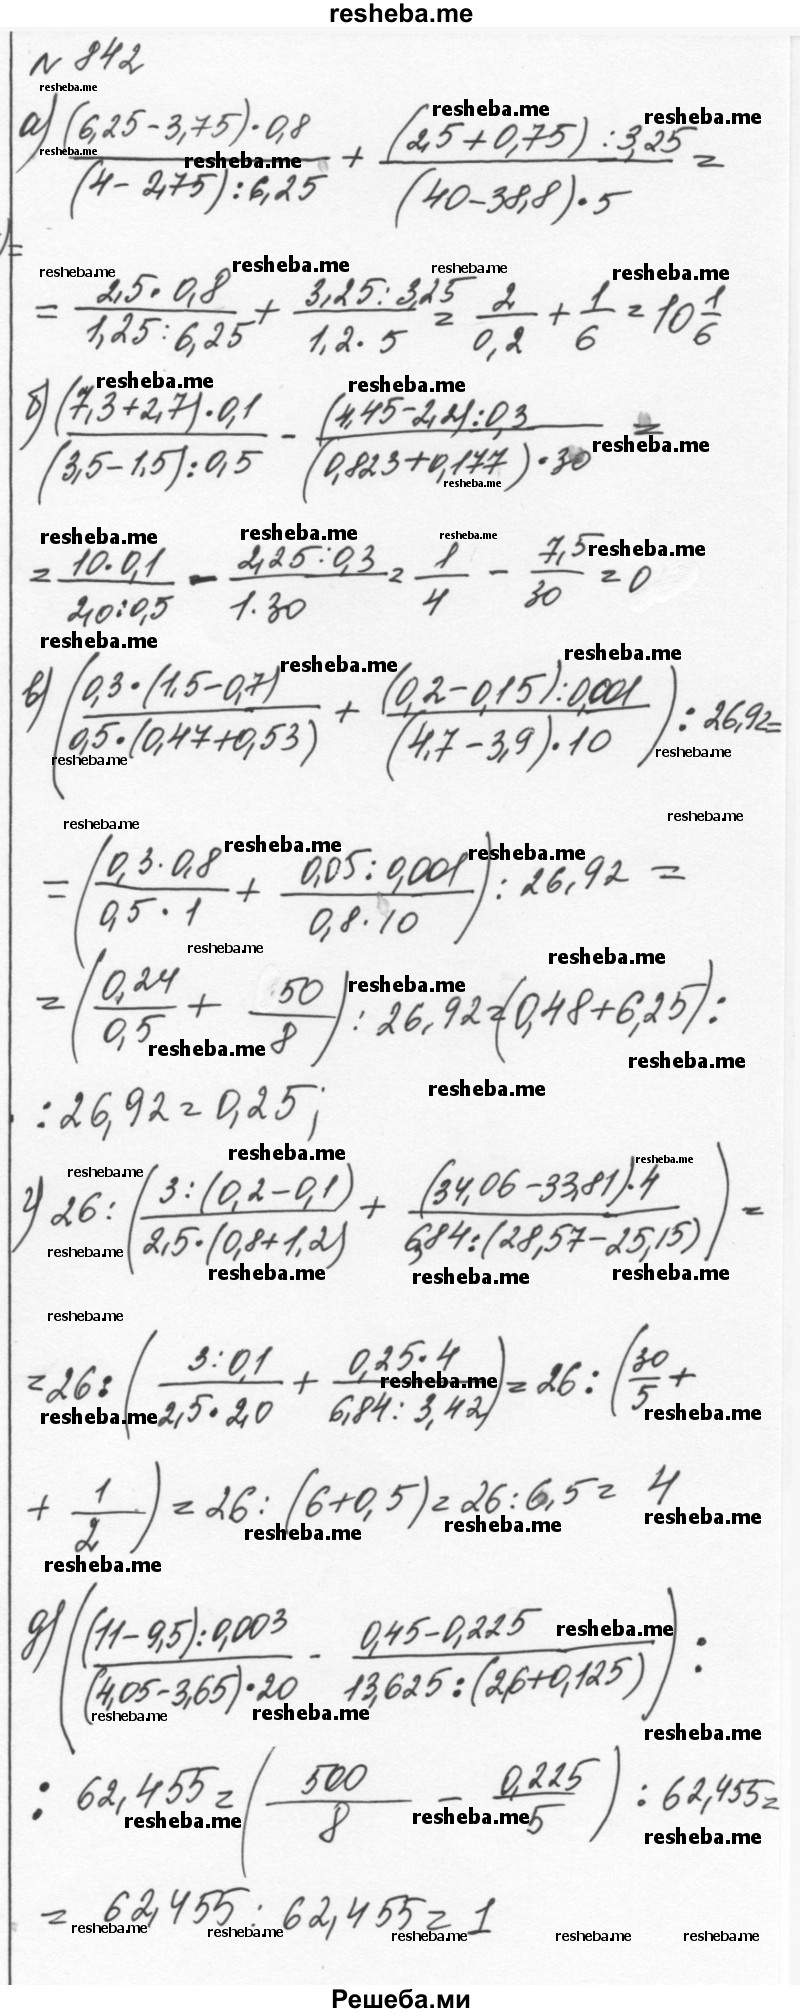 resheba.me
№ 842
а) ((6,25-3,75)·0,8)/((4-2,75):6,25) + ((2,5+0,75):3,25)/((40-38,8)·5) =
= (2,5·0,8)/(1,25:6,25) + (3,25:3,25)/(1,2·5) = 2/0,2 + 1/6 = 10 1/6
б) ((7,3+2,7)·0,1)/((3,5-1,5):0,5) - ((4,45-2,2):0,3)/((0,823+0,177)·30) =
= (10·0,1)/(2,0:0,5) - (2,25:0,3)/(1·30) = 1/4 - 7,5/30 = 0
в) ((0,3·(1,5-0,7))/(0,5·(0,47+0,53)) + ((0,2-0,15):0,001)/((4,7-3,9)·10)) : 26,92 =
= ((0,3·0,8)/(0,5·1) + (0,05:0,001)/(0,8·10)) : 26,92 =
= (0,24/0,5 + 50/8) : 26,92 = (0,48+6,25) :
: 26,92 = 0,25;
г) 26 : ((3:(0,2-0,1))/(2,5·(0,8+1,2)) + ((34,06-33,81)·4)/(6,84:(28,57-25,15))) =
= 26 : ((3:0,1)/(2,5·2,0) + (0,25·4)/(6,84:3,42)) = 26 : (30/5 +
+ 1/2) = 26 : (6+0,5) = 26 : 6,5 = 4
д) (((11-9,5):0,003)/((4,05-3,65)·20) - (0,45-0,225)/(13,625:(2,6+0,125))) :
: 62,455 = (500/8 - 0,225/5) : 62,455 =
= 62,455 : 62,455 = 1
Решеба.ми